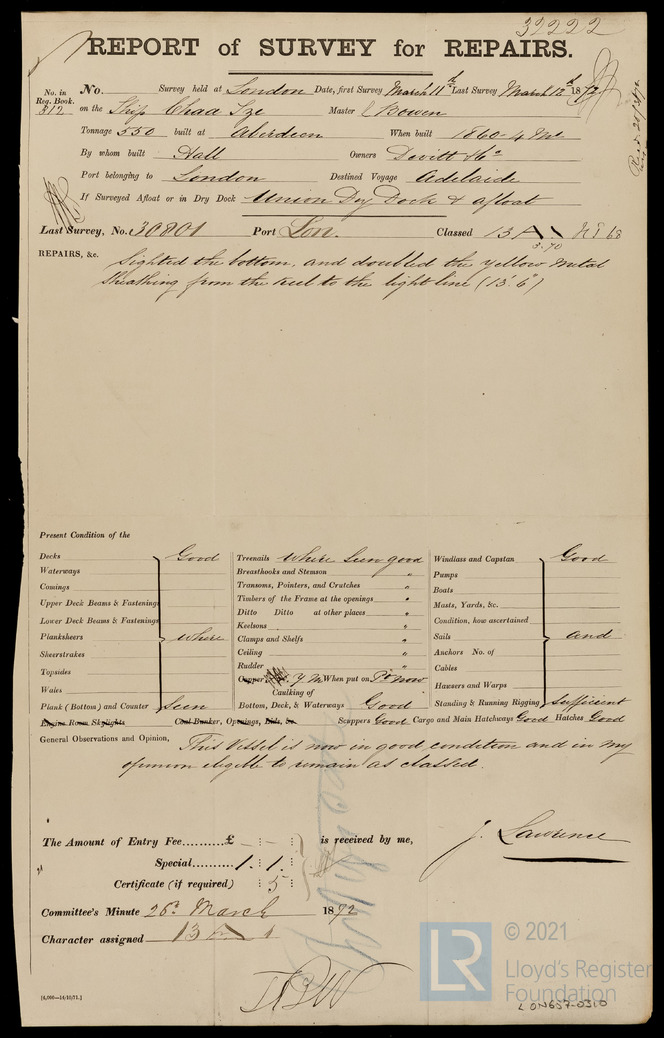 32222
REPORT of SURVEY for REPAIRS.
No. in Reg. Book. 812
No. Survey held at London Date, first Survey March 11th Last Survey March 12th 1872
on the Ship Chaa Sze Master Bowen
Tonnage 550 built at Aberdeen When built 1860-4 Mo
By whom built Hall Owners Devitt & Co
Port belonging to London Destined Voyage Adelaide
If Surveyed Afloat or in Dry Dock Union Dry Dock & afloat
Last Survey, No. 30801 Port Lon. Classed 13 A 1
3.70
REPAIRS, &c. Sighted the bottom, and doubled the yellow metal
sheathing from the keel to the light line (13'.6")
Present Condition of the
Decks Good Treenails Where Seen good Windlass and Capstan Good
Waterways Breasthooks and Stemson " Pumps
Comings Transoms, Pointers, and Crutches " Boats
Upper Deck Beams & Fastenings Timbers of the Frame at the openings " Masts, Yards, &c.
Lower Deck Beams & Fastenings Ditto Ditto at other places " Condition, how ascertained
Planksheers where Keelsons " Sails and
Sheerstrakes Clamps and Shelfs " Anchors No. of
Topsides Ceiling " Cables
Wales Rudder " Hawsers and Warps
Copper Y M. When put on Pt now
Caulking of
Plank (Bottom) and Counter Seen Bottom, Deck, & Waterways Good Standing & Running Rigging Sufficient
Engine Room Skylights Coal Bunker, Openings, Lids, &c. Scuppers Good Cargo and Main Hatchways Good Hatches Good
General Observations and Opinion, This Vessel is now in good condition and in my
opinion eligible to remain as classed.
J. Lawrence
The Amount of Entry Fee.........£ - : - : is received by me,
Special.......... 1 : 1 :
Certificate (if required) : 5 :
Committee's Minute 26th March 1872
Character assigned 13 A 1
[6,000—14/10/71.]
LR
© 2021
Lloyd's Register
Foundation
LON657-0310